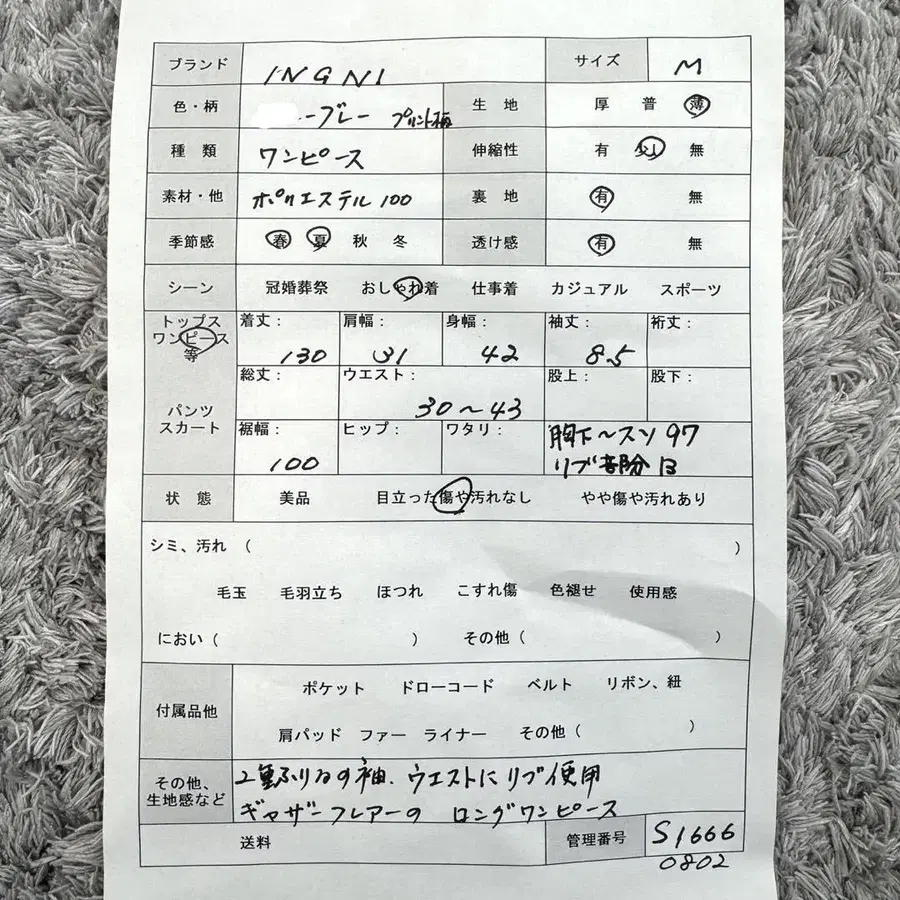 ブランド INGNI サイズ M
色・柄 ーブレー プリント柄 生地 厚 普 薄
種類 ワンピース 伸縮性 有 少し 無
素材・他 ポリエステル 100 裏地 有 無
季節感 春 夏 秋 冬 透け感 有 無
シーン 冠婚葬祭 おしゃれ着 仕事着 カジュアル スポーツ
トップス ワンピース 等
着丈: 130 肩幅: 31 身幅: 42 袖丈: 8.5 裄丈:
パンツ スカート
総丈: ウエスト: 30～43 股上: 股下:
裾幅: 100 ヒップ: ワタリ: 胸下～スソ 97
リブ部分 13
状態 美品 目立った傷や汚れなし やや傷や汚れあり
シミ、汚れ ( )
毛玉 毛羽立ち ほつれ こすれ傷 色褪せ 使用感
におい ( ) その他 ( )
付属品他
ポケット ドローコード ベルト リボン、紐
肩パッド ファー ライナー その他 ( )
その他、
生地感など
2重ふりるの袖、ウエストにリブ使用
ギャザーフレアーの ロングワンピース
送料 管理番号 S1666
0802